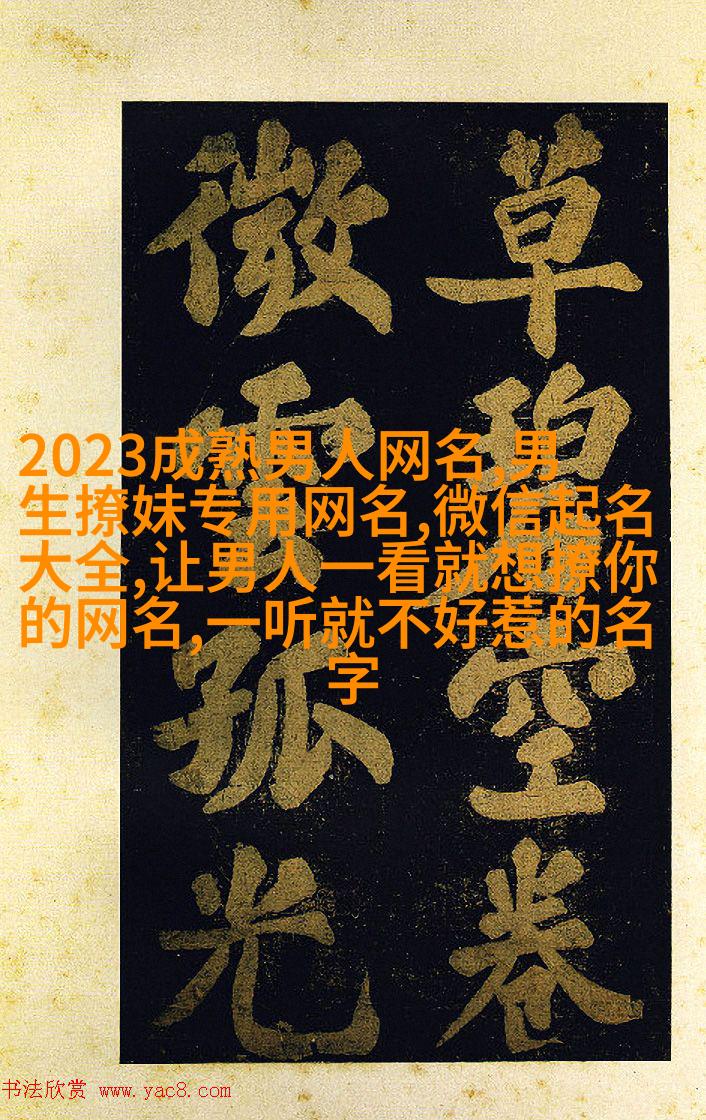 草碧空卷
微雲孤光
2023成熟男人网名,男
生撩妹专用网名,微信起名
大全,让男人一看就想撩你
的网名,一听就不好惹的名
字
书法欣赏 www.yac8.com